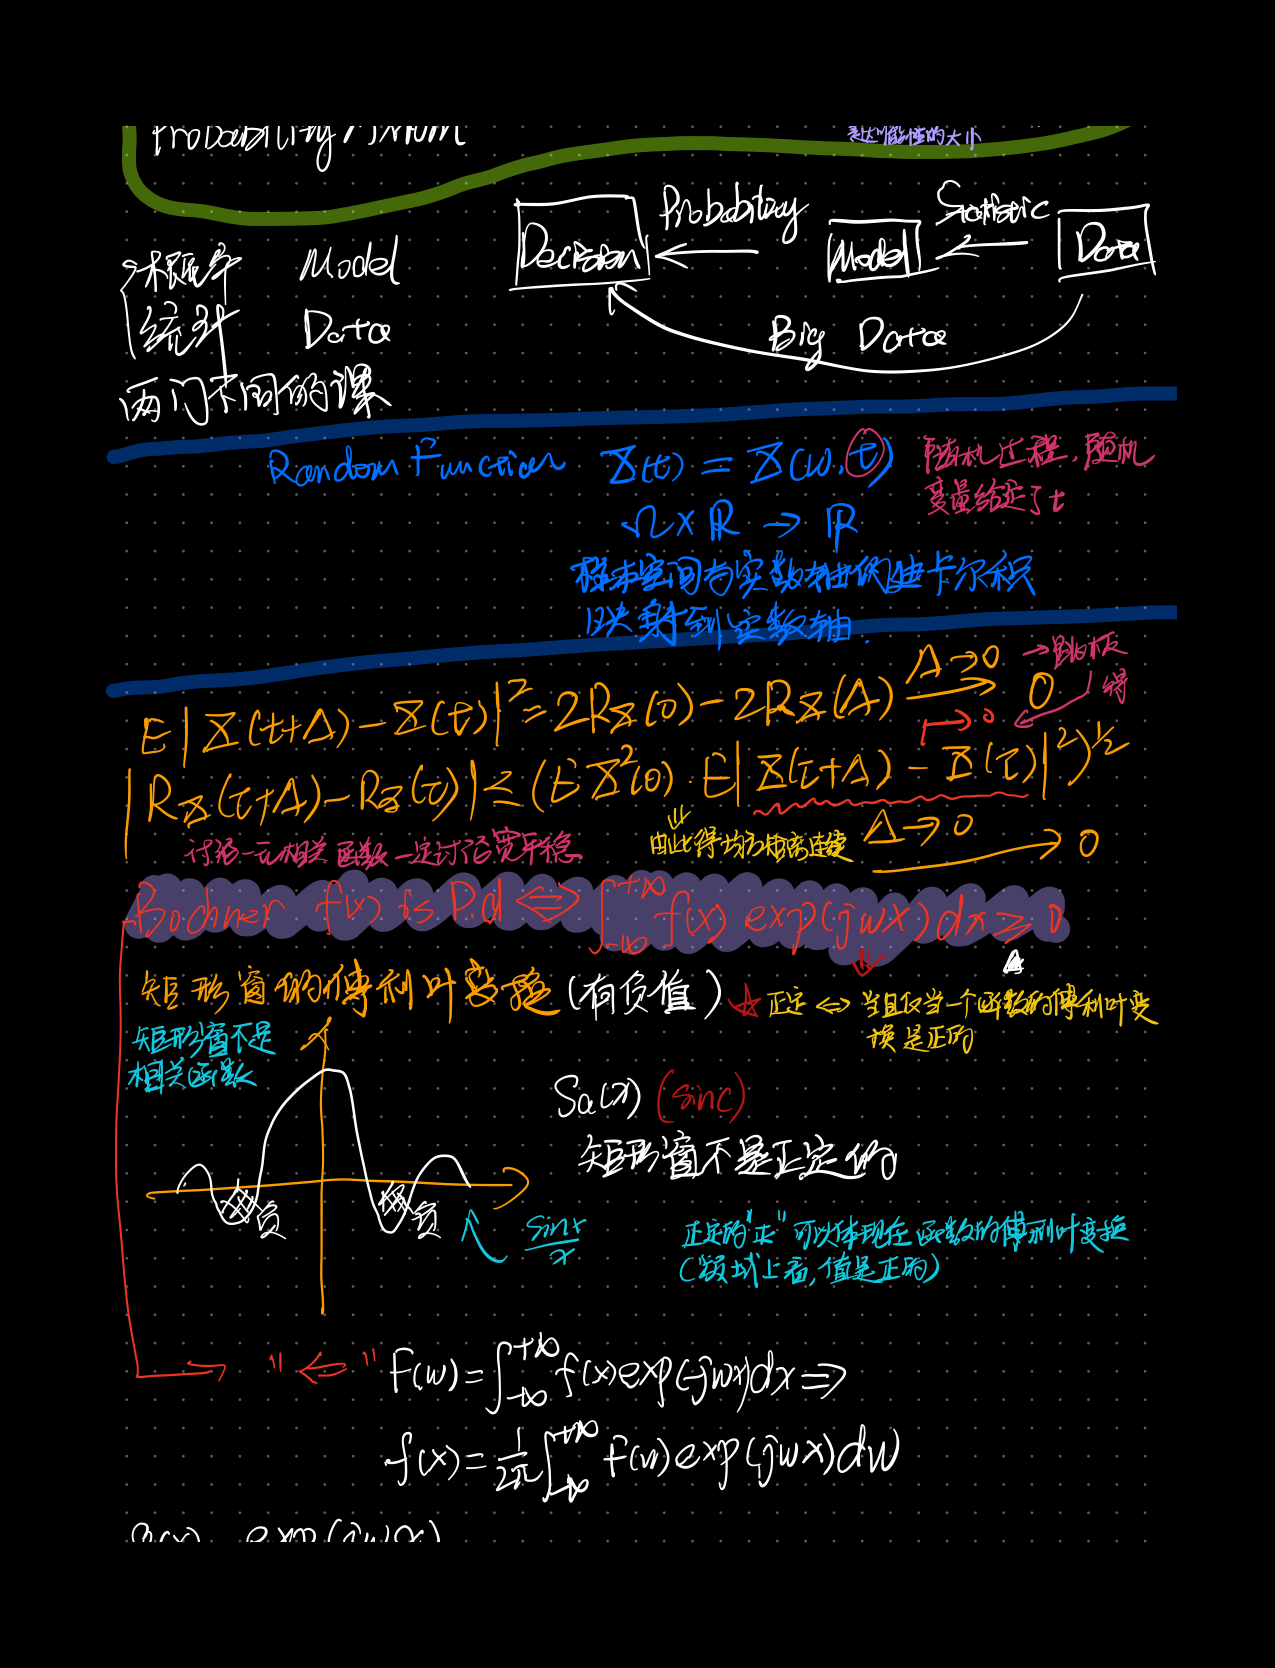 Probability Axiom
表达可能性的大小
概率 Model
统计 Data
两门不同的课
Decision Probability Model Statistic Data
Big Data
Random Function X(t) = X(ω, t) 随机过程，随机
变量给定了t
Ω × R → R
样本空间与实数轴的笛卡尔积
映射到实数轴.
→跳板
得
E|X(t+Δ) − X(t)|² = 2R_X(0) − 2R_X(Δ) Δ→0 0
→0
|R_X(τ+Δ) − R_X(τ)| ≤ (E X²(0) · E|X(τ+Δ) − X(τ)|²)^½
讨论一元相关函数一定讨论宽平稳 ⇓ 由此得均方距离连续 Δ→0 → 0
Bochner f(x) is P.d ⇔ ∫_{-∞}^{+∞} f(x) exp(jωx) dx ≥ 0
矩形窗的傅利叶变换 (有负值) ☆正定 ⇔ 当且仅当一个函数的傅利叶变
换是正的
矩形窗不是
相关函数
Sa(x) (sinc)
矩形窗不是正定的
负 负 sinx/x
正定的"正"可以体现在函数的傅利叶变换
(频域上看, 值是正的)
"⇐" F(ω) = ∫_{-∞}^{+∞} f(x) exp(-jωx) dx ⇒
f(x) = 1/2π ∫_{-∞}^{+∞} F(ω) exp(jωx) dω
exp(jωx)